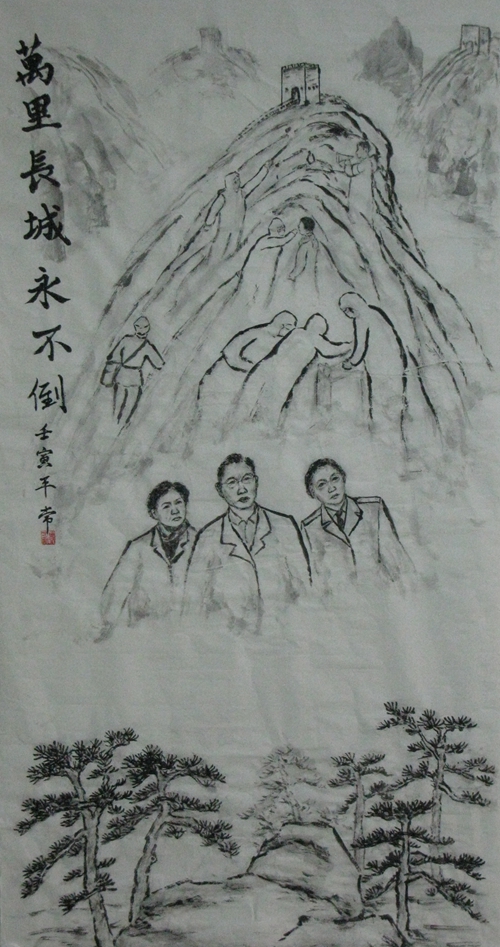 萬里長城永不倒
壬寅平常